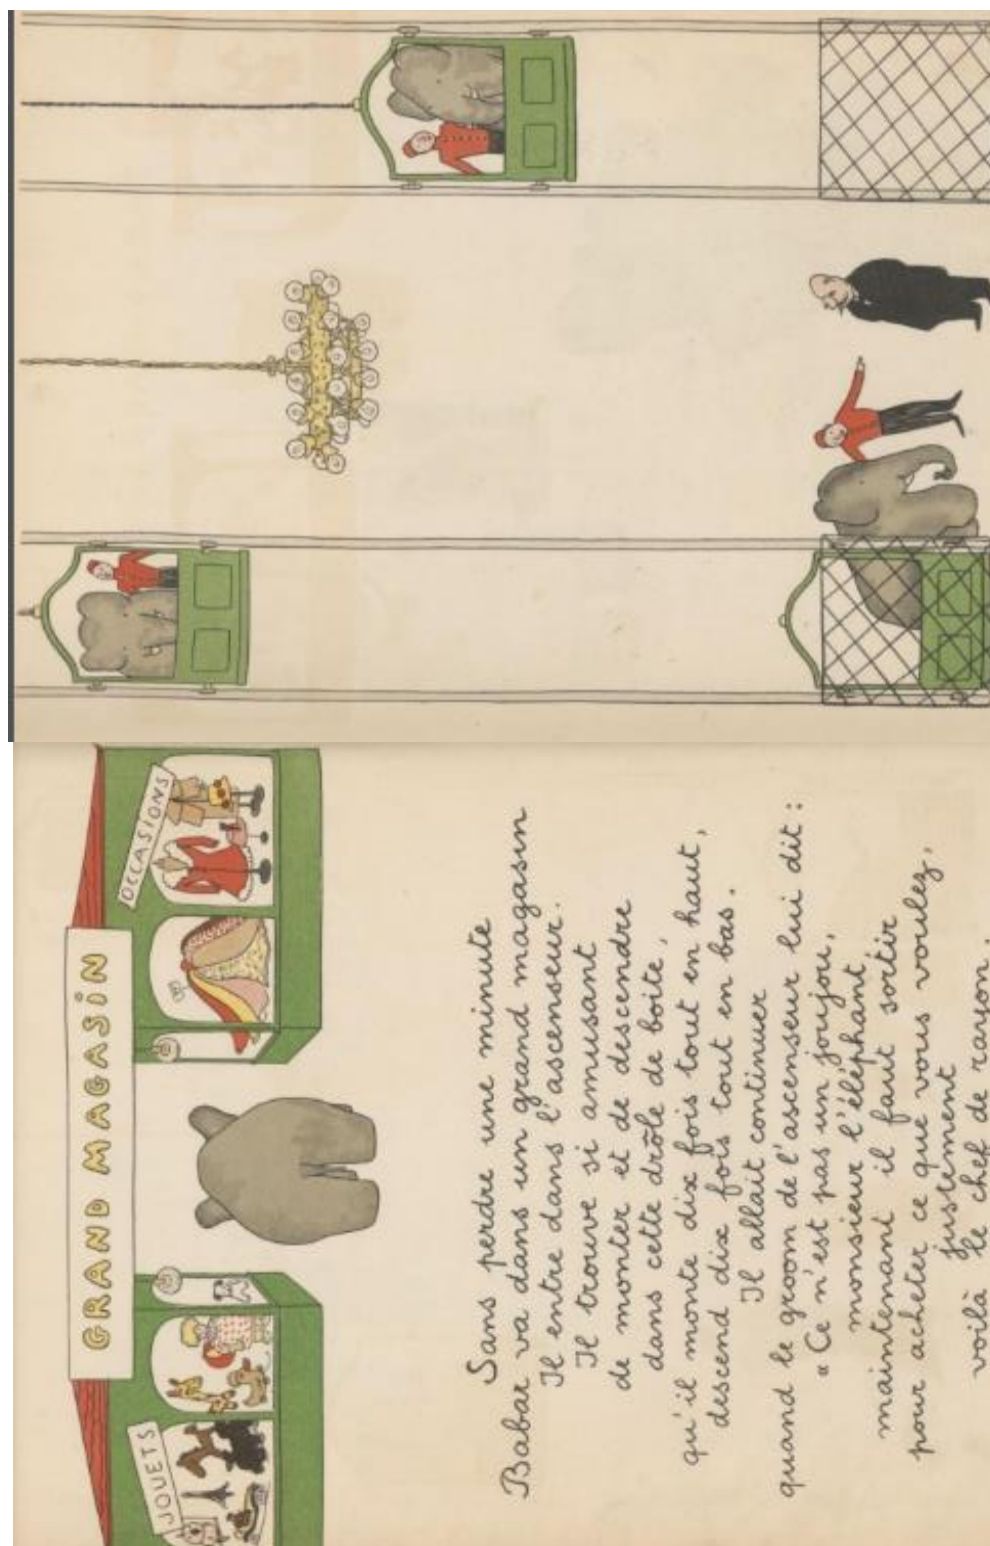 GRAND MAGASIN
JOUETS
OCCASIONS
Sans perdre une minute
Babar va dans un grand magasin
Il entre dans l'ascenseur.
Il trouve si amusant
de monter et de descendre
dans cette drôle de boite,
qu'il monte dix fois tout en haut,
descend dix fois tout en bas.
Il allait continuer
quand le groom de l'ascenseur lui dit :
« Ce n'est pas un joujou,
monsieur l'éléphant,
maintenant il faut sortir
pour acheter ce que vous voulez,
justement
voilà le chef de rayon.